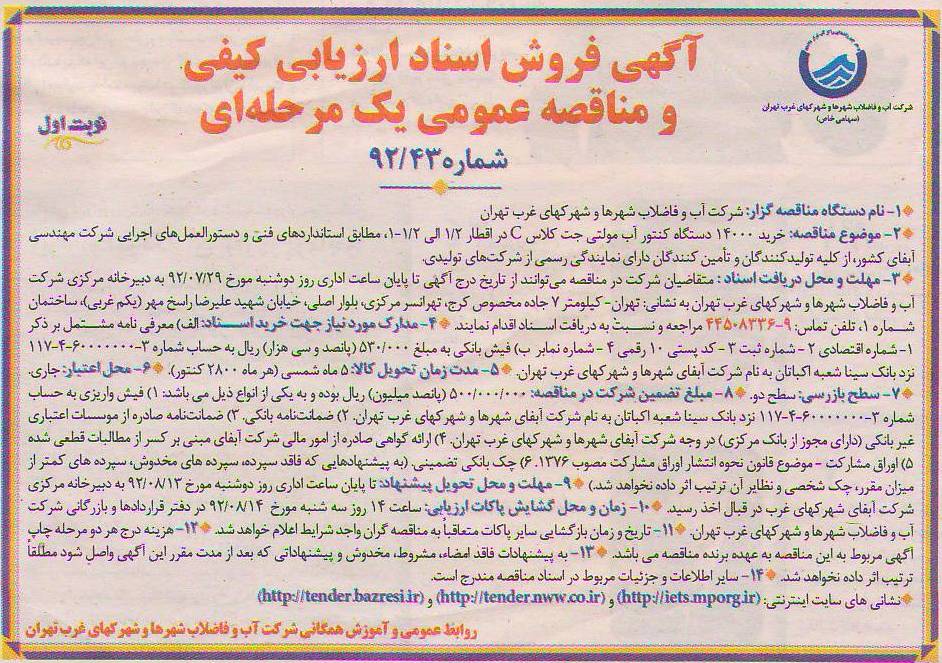 شرکت آب و فاضلاب شهرها و شهرکهای غرب تهران
(سهامی خاص)
آگهی فروش اسناد ارزیابی کیفی
و مناقصه عمومی یک مرحله‌ای
نوبت اول
شماره ۹۲/۴۳
۱- نام دستگاه مناقصه گزار: شرکت آب و فاضلاب شهرها و شهرکهای غرب تهران
۲- موضوع مناقصه: خرید ۱۴۰۰۰ دستگاه کنتور آب مولتی جت کلاس C در اقطار ۱/۲ الی ۱/۲-۱، مطابق استانداردهای فنی و دستورالعمل‌های اجرایی شرکت مهندسی
آبفای کشور، از کلیه تولیدکنندگان و تأمین کنندگان دارای نمایندگی رسمی از شرکت‌های تولیدی.
۳- مهلت و محل دریافت اسناد: متقاضیان شرکت در مناقصه می‌توانند از تاریخ درج آگهی تا پایان ساعت اداری روز دوشنبه مورخ ۹۲/۰۷/۲۹ به دبیرخانه مرکزی شرکت
آب و فاضلاب شهرها و شهرکهای غرب تهران به نشانی: تهران- کیلومتر ۷ جاده مخصوص کرج، تهرانسر مرکزی، بلوار اصلی، خیابان شهید علیرضا راسخ مهر (یکم غربی)، ساختمان
شماره ۱، تلفن تماس: ۹-۴۴۵۰۸۳۳۶ مراجعه و نسبت به دریافت اسناد اقدام نمایند. ۴- مدارک مورد نیاز جهت خرید اسناد: الف) معرفی نامه مشتمل بر ذکر
۱- شماره اقتصادی ۲ - شماره ثبت ۳ - کد پستی ۱۰ رقمی ۴ - شماره نمابر ب) فیش بانکی به مبلغ ۵۳۰/۰۰۰ (پانصد و سی هزار) ریال به حساب شماره ۳-۶۰۰۰۰۰۰۰-۴-۱۱۷
نزد بانک سینا شعبه اکباتان به نام شرکت آبفای شهرها و شهرکهای غرب تهران. ۵- مدت زمان تحویل کالا: ۵ ماه شمسی (هر ماه ۲۸۰۰ کنتور). ۶- محل اعتبار: جاری.
۷- سطح بازرسی: سطح دو. ۸- مبلغ تضمین شرکت در مناقصه: ۵۰۰/۰۰۰/۰۰۰ (پانصد میلیون) ریال بوده و به یکی از انواع ذیل می باشد: ۱) فیش واریزی به حساب
شماره ۳-۶۰۰۰۰۰۰۰-۴-۱۱۷ نزد بانک سینا شعبه اکباتان به نام شرکت آبفای شهرها و شهرکهای غرب تهران. ۲) ضمانت‌نامه بانکی. ۳) ضمانت‌نامه صادره از موسسات اعتباری
غیر بانکی (دارای مجوز از بانک مرکزی) در وجه شرکت آبفای شهرها و شهرکهای غرب تهران. ۴) ارائه گواهی صادره از امور مالی شرکت آبفای مبنی بر کسر از مطالبات قطعی شده
۵) اوراق مشارکت - موضوع قانون نحوه انتشار اوراق مشارکت مصوب ۱۳۷۶. ۶) چک بانکی تضمینی. (به پیشنهادهایی که فاقد سپرده، سپرده های مخدوش، سپرده های کمتر از
میزان مقرر، چک شخصی و نظایر آن ترتیب اثر داده نخواهد شد.) ۹- مهلت و محل تحویل پیشنهاد: تا پایان ساعت اداری روز دوشنبه مورخ ۹۲/۰۸/۱۳ به دبیرخانه مرکزی
شرکت آبفای شهرکهای غرب تهران در قبال اخذ رسید. ۱۰- زمان و محل گشایش پاکات ارزیابی: ساعت ۱۴ روز سه شنبه مورخ ۹۲/۰۸/۱۴ در دفتر قراردادها و بازرگانی شرکت
آب و فاضلاب شهرها و شهرکهای غرب تهران. ۱۱- تاریخ و زمان بازگشایی سایر پاکات متعاقباً به مناقصه گران واجد شرایط اعلام خواهد شد. ۱۲- هزینه درج هر دو مرحله چاپ
آگهی مربوط به این مناقصه به عهده برنده مناقصه می باشد. ۱۳- به پیشنهادات فاقد امضاء، مشروط، مخدوش و پیشنهاداتی که بعد از مدت مقرر این آگهی واصل شود مطلقاً
ترتیب اثر داده نخواهد شد. ۱۴- سایر اطلاعات و جزئیات مربوط در اسناد مناقصه مندرج است.
نشانی های سایت اینترنتی: (http://iets.mporg.ir) و (http://tender.nww.co.ir) و (http://tender.bazresi.ir)
روابط عمومی و آموزش همگانی شرکت آب و فاضلاب شهرها و شهرکهای غرب تهران